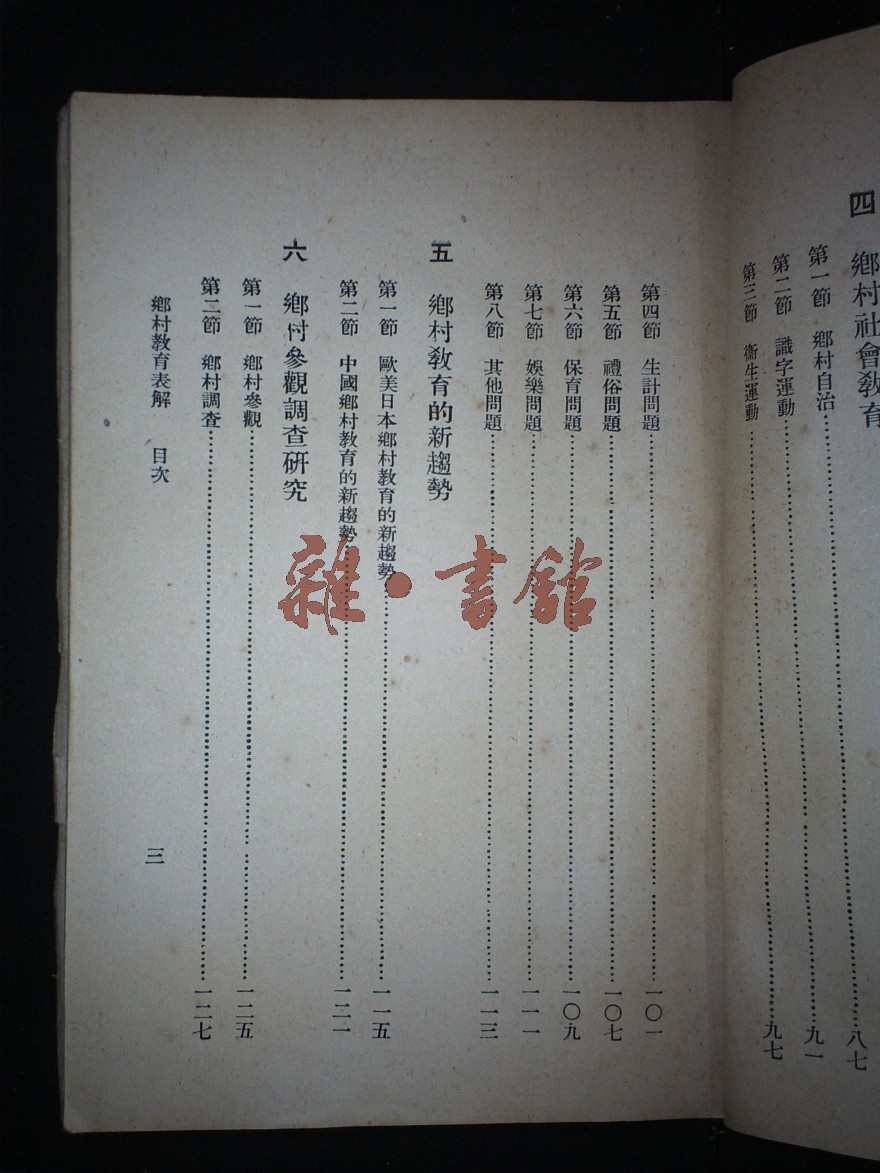 四 鄉村社會教育
第一節 鄉村自治……八七
第二節 識字運動……九一
第三節 衞生運動……九七
第四節 生計問題……一〇一
第五節 禮俗問題……一〇七
第六節 保育問題……一〇九
第七節 娛樂問題……一一一
第八節 其他問題……一一三
五 鄉村教育的新趨勢
第一節 歐美日本鄉村教育的新趨勢……一一五
第二節 中國鄉村教育的新趨勢……一二一
六 鄉村參觀調查研究
第一節 鄉村參觀……一二五
第二節 鄉村調查……一二七
鄉村教育表解 目次 三
雜·書館